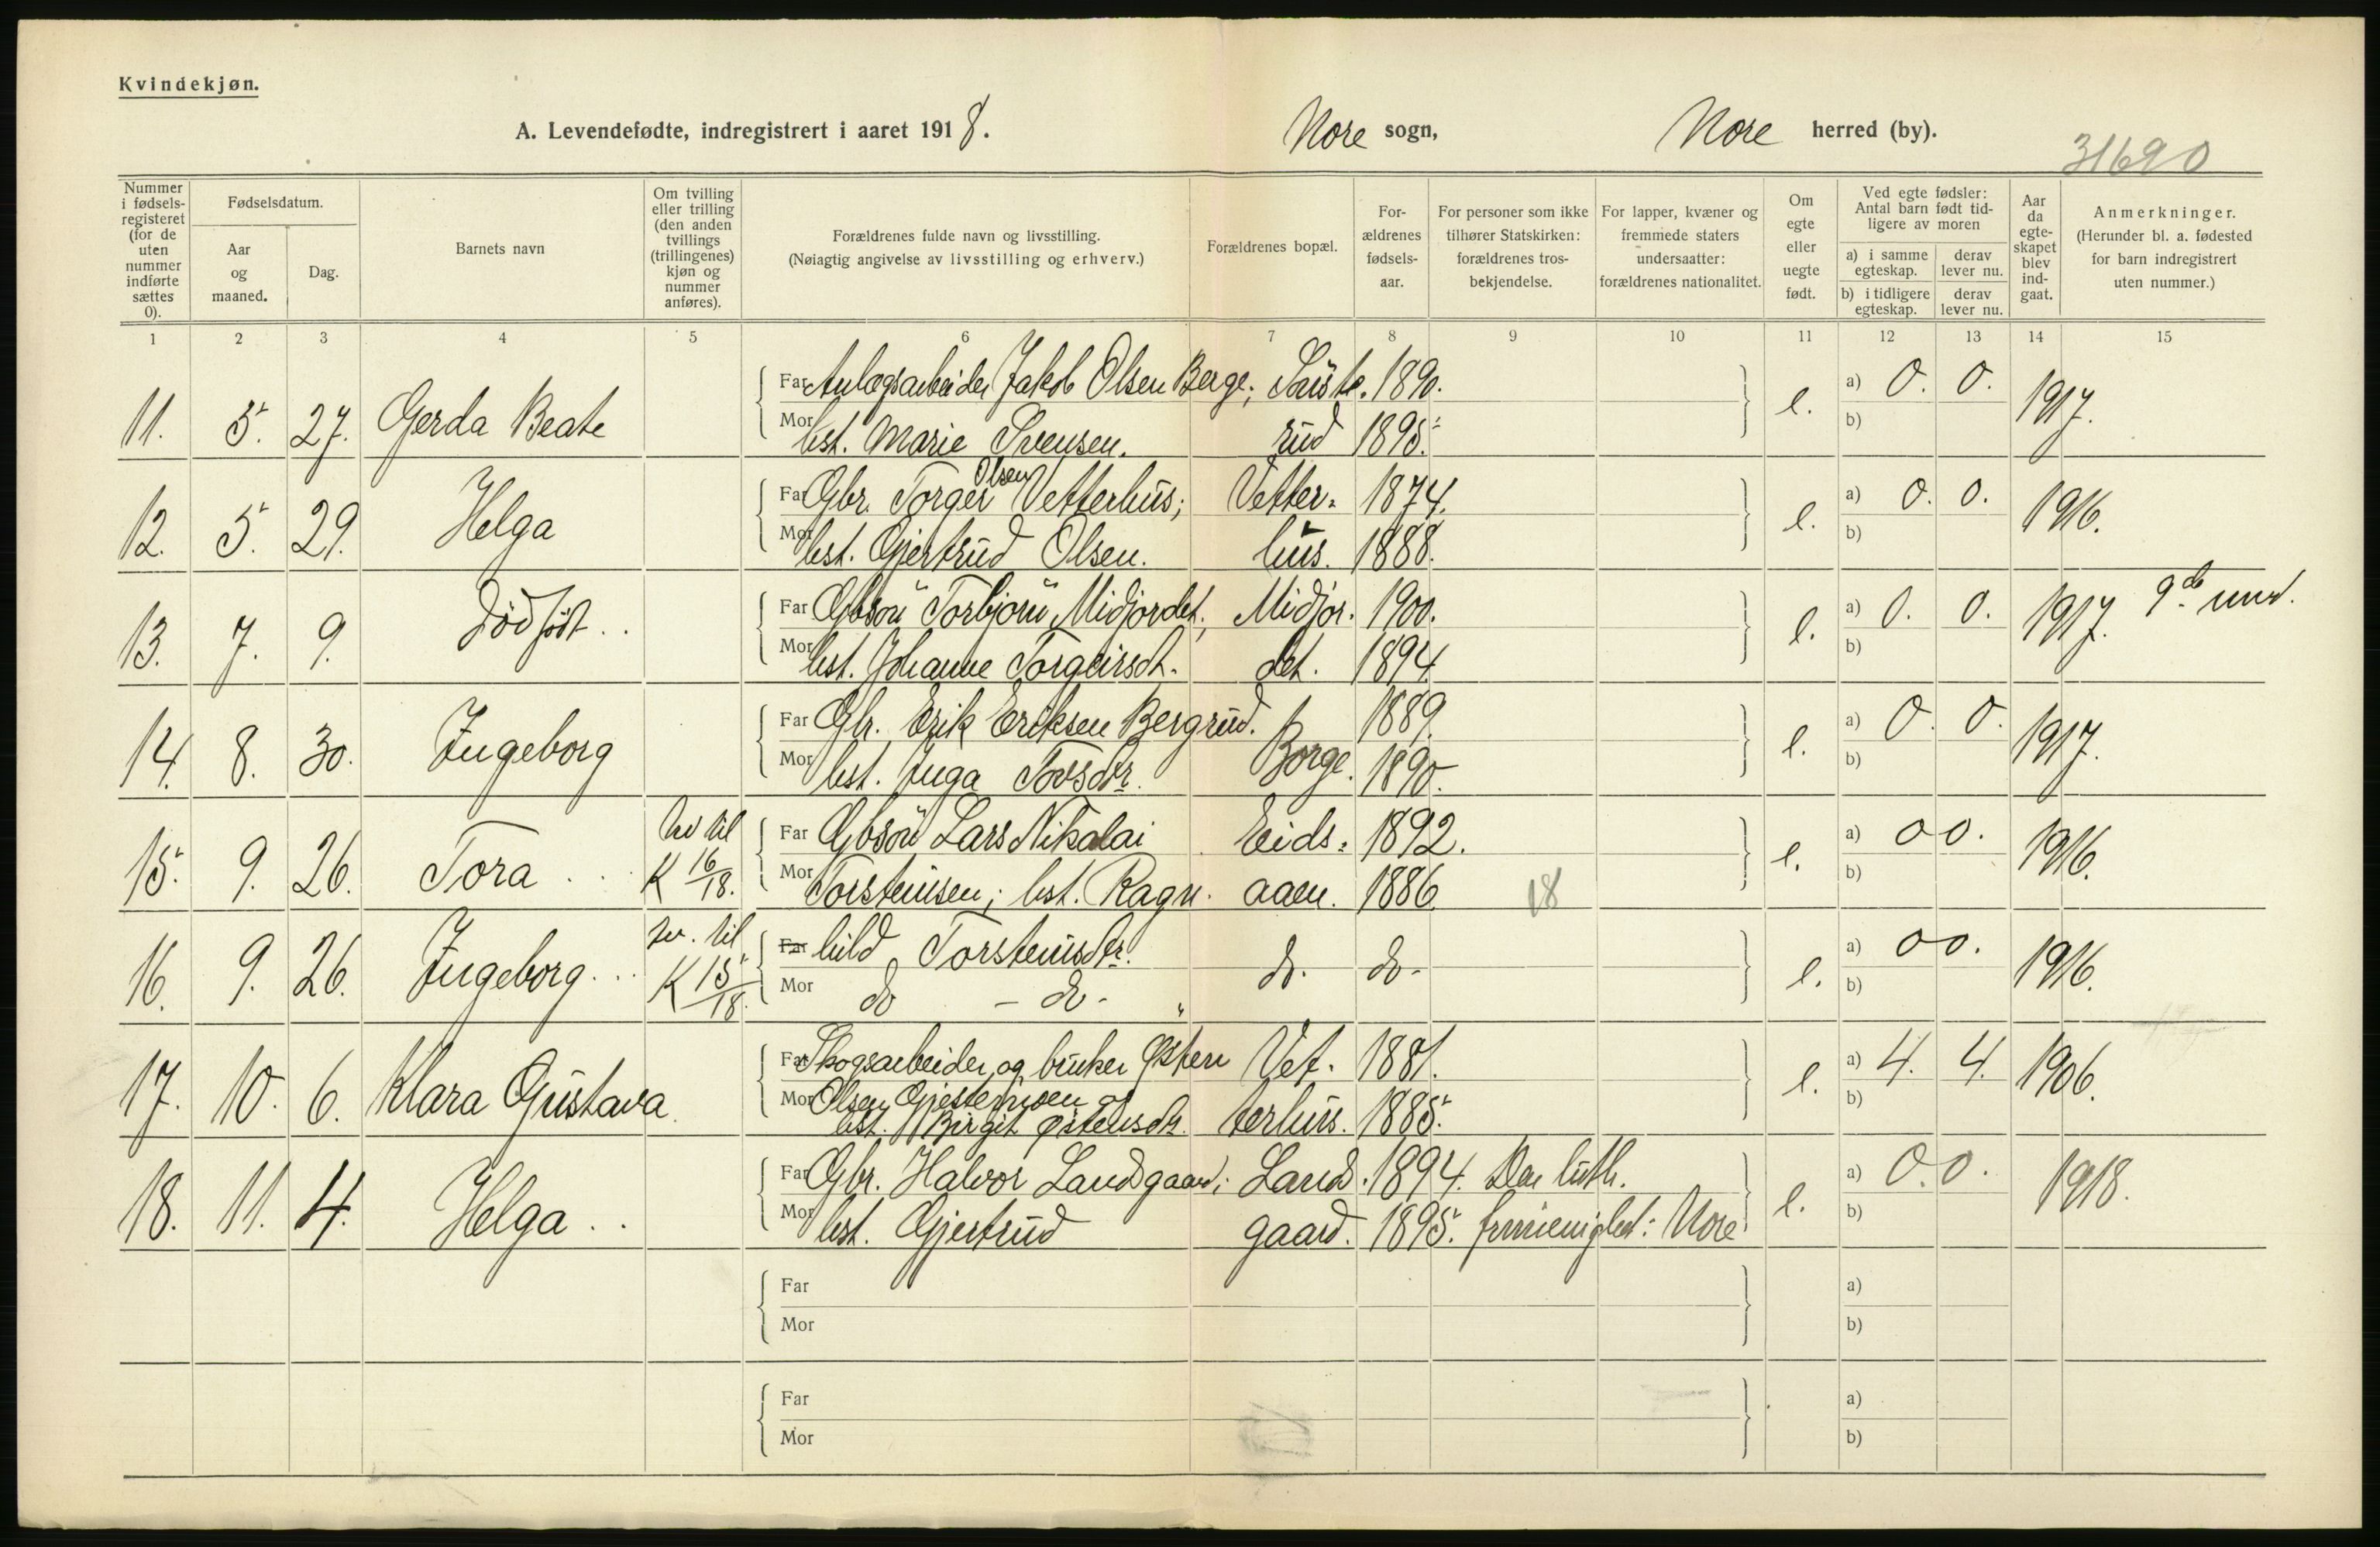 Kvindekjøn.
A. Levendefødte, indregistrert i aaret 1918. Nore sogn, Nore herred (by).
31690
Nummer i fødsels-registeret (for de uten nummer indførte sættes 0).
Fødselsdatum.
Aar og maaned.
Dag.
Barnets navn
Om tvilling eller trilling (den anden tvillings (trillingenes) kjøn og nummer anføres).
Forældrenes fulde navn og livsstilling.
(Nøiagtig angivelse av livsstilling og erhverv.)
Forældrenes bopæl.
For-ældrenes fødsels-aar.
For personer som ikke tilhører Statskirken: forældrenes tros-bekjendelse.
For lapper, kvæner og fremmede staters undersaatter: forældrenes nationalitet.
Om egte eller uegte født.
Ved egte fødsler: Antal barn født tid-ligere av moren
a) i samme egteskap. derav lever nu.
b) i tidligere egteskap. derav lever nu.
Aar da egte-skapet blev ind-gaat.
Anmerkninger.
(Herunder bl. a. fødested for barn indregistrert uten nummer.)
1 2 3 4 5 6 7 8 9 10 11 12 13 14 15
Far Anlægsarbeider Jakob Olsen Berge; 1890.
11. 5. 27. Gerda Beate e. a) 0. 0. b) 1917.
Mor hst. Marie Svensen. rud 1895.
Far Gbr. Torger Olsen Vetterhus; Vetter- 1874.
12. 5. 29. Helga e. a) 0. 0. b) 1916.
Mor hst. Gjertrud Olsen. hus. 1888.
Far Gbsøn Torbjørn Midjordet; Midjor. 1900.
13. 7. 9. Dødfødt.. e. a) 0. 0. b) 1917. 9de mnd.
Mor hst. Johanne Torgeirsdt. det. 1894.
Far Gbr. Erik Eriksen Bergrud. 1889.
14. 8. 30. Ingeborg e. a) 0. 0. b) 1917.
Mor hst. Inga Tovsdtr. Borge. 1890.
Far Gbsøn Lars Nikolai Eids- 1892.
15. 9. 26. Tora .. tv til K 16/18. e. a) 0 0. b) 1916.
Mor Torsteinsen; hst. Ragn- aaen. 1886 18
Far hild Torsteinsdtr.
16. 9. 26. Ingeborg... tv. til K 15/18. do. do- e. a) 0 0. b) 1916.
Mor do - do - "
Far Skogsarbeider og bruker Østen Vet- 1881.
17. 10. 6. Klara Gustava. e. a) 4. 4. b) 1906.
Mor Olsen Gjestemoen og
hst. Birgit Østensdtr. terhus. 1885.
Far Gbr. Halvor Landsgaard; Lands- 1894. Den luth.
18. 11. 4. Helga .. e. a) 0. 0. b) 1918.
Mor hst. Gjertrud gaard. 1895. frimenighet: Nore
Far a)
Mor b)
Far a)
Mor b)